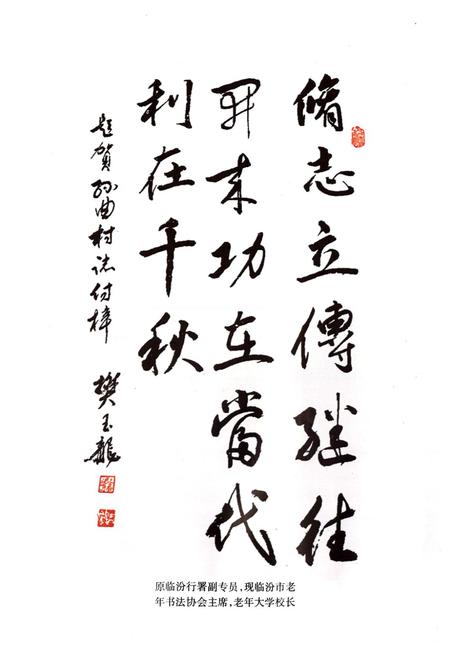 脩志立傳继往
開来功在當代
利在千秋
题贺孙曲村志付梓
樊玉龍
原临汾行署副专员,现临汾市老
年书法协会主席,老年大学校长